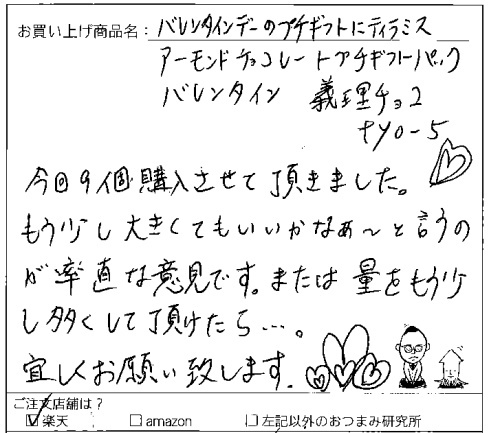 お買い上げ商品名：バレンタインデーのプチギフトにティラミス
アーモンドチョコレートプチギフトパック
バレンタイン 義理チョコ
tyo-5
今回9個購入させて頂きました。
もう少し大きくてもいいかなぁ〜と言うの
が率直な意見です。または量をもう少
し多くして頂けたら…。
宜しくお願い致します。
ご注文店舗は？
☑楽天 □amazon □左記以外のおつまみ研究所